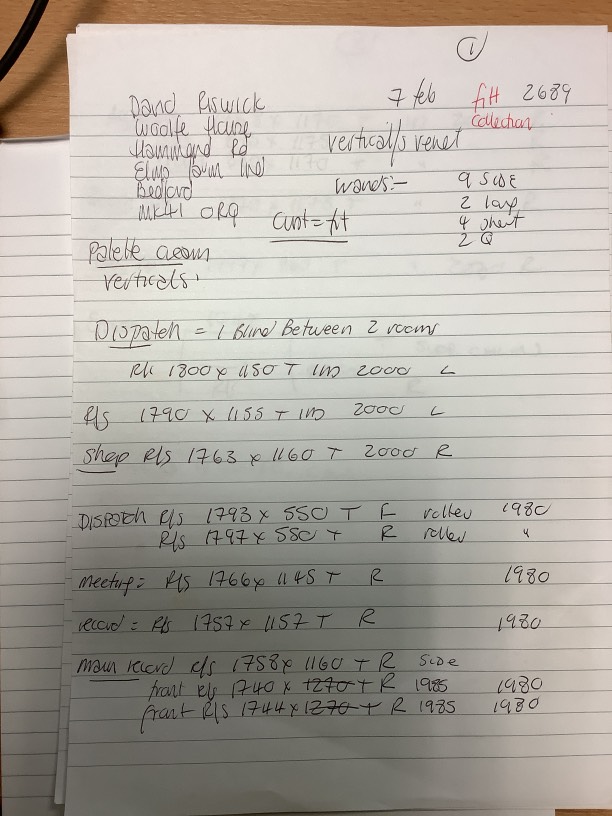 1
7 feb fit 2689
collection
David Riswick
Woolfe House
Hammond Rd
Elms Farm Ind
Bedford
MK41 0RQ
vertical/s
wands:- 9 side
2
4 short
2 Q
= fit
Palette cream
verticals.
Dispatch = 1 Blind Between 2 rooms
1800 x 1150 T 2000 L
R/s 1790 x 1155 T 2000 L
Shop R/s 1763 x 1160 T 2000 R
DISPATCH R/s 1793 x 550 T F roller 1980
R/s 1797 x 550 T R roller "
meeting = R/s 1766 x 1145 T R 1980
record = R/s 1757 x 1157 T R 1980
main record R/s 1758 x 1160 T R side
front R/s 1740 x 1270 T R 1985 1980
front R/s 1744 x 1270 T R 1985 1980